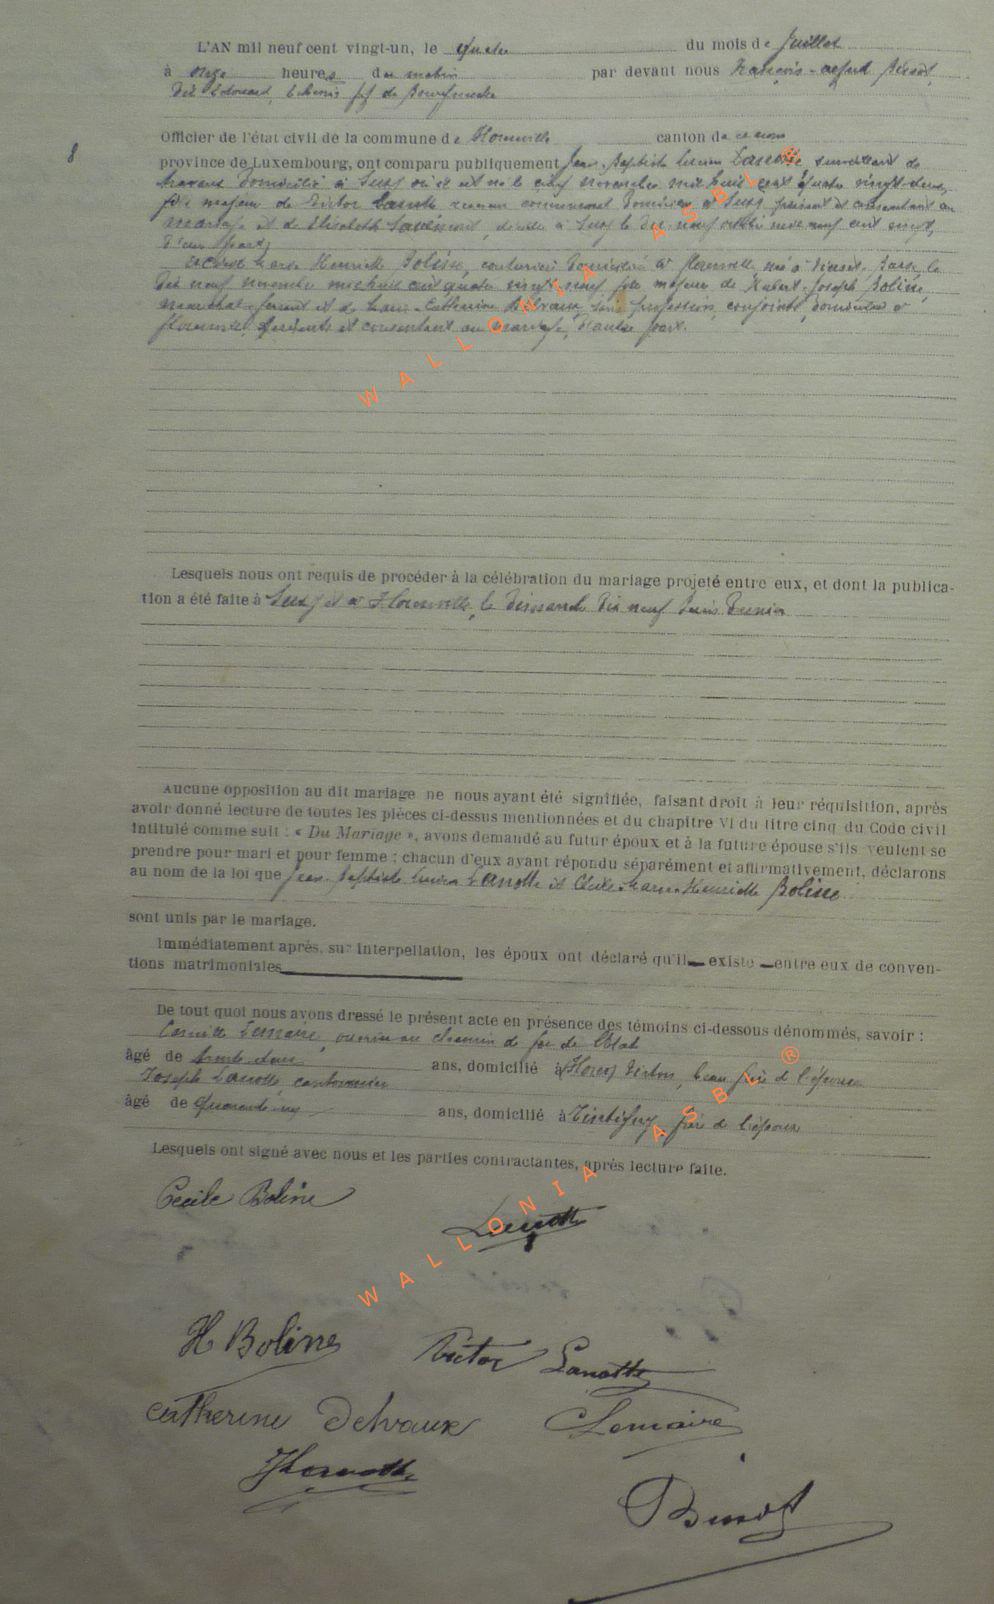 L'AN mil neuf cent vingt-un, le quatre du mois de juillet
à onze heures du matin par devant nous François-Alfred Binot,
dit Edouard, Echevin ff de Bourgmestre
8
Officier de l'état civil de la commune de Florenville canton de ce nom
province de Luxembourg, ont comparu publiquement Jean-Baptiste Lucien Lanotte surveillant de
travaux domicilié à où il est né le cinq novembre mil huit cent quatre vingt-deux,
fils majeur de Victor Lanotte communal domicilié à présent et consentant au
mariage et de Elisabeth décédée à le dix neuf mil neuf cent vingt,
d'une part;
et Cécile Marie Henriette Boline, couturière domiciliée à Florenville née à le
dix neuf novembre mil huit cent quatre vingt neuf fille majeure de Hubert-Joseph Boline,
maréchal-ferrant et de Catherine Delvaux, sans profession, conjoints, domiciliés à
Florenville, présents et consentant au mariage, d'autre part.
Lesquels nous ont requis de procéder à la célébration du mariage projeté entre eux, et dont la publica-
tion a été faite à et à Florenville, le dimanche dix neuf Juin dernier
Aucune opposition au dit mariage ne nous ayant été signifiée, faisant droit à leur réquisition, après
avoir donné lecture de toutes les pièces ci-dessus mentionnées et du chapitre VI du titre cinq du Code civil
intitulé comme suit : « Du Mariage », avons demandé au futur époux et à la future épouse s'ils veulent se
prendre pour mari et pour femme ; chacun d'eux ayant répondu séparément et affirmativement, déclarons
au nom de la loi que Jean-Baptiste Lucien Lanotte et Cécile-Marie-Henriette Boline
sont unis par le mariage.
Immédiatement après, sur interpellation, les époux ont déclaré qu'il existe entre eux de conven-
tions matrimoniales
De tout quoi nous avons dressé le présent acte en présence des témoins ci-dessous dénommés, savoir :
Camille Lemaire, ouvrier au chemin de fer de l'Etat
âgé de trente deux ans, domicilié à Virton, beau frère de l'épouse
Joseph Lanotte cantonnier
âgé de quarante ans, domicilié à Tintigny, frère de l'époux
Lesquels ont signé avec nous et les parties contractantes, après lecture faite.
Cecile Boline
Lanotte
H Boline Victor Lanotte
Catherine Delvaux C Lemaire
J Lanotte
Binot
WALLONIA ASBL ®
WALLONIA ASBL ®